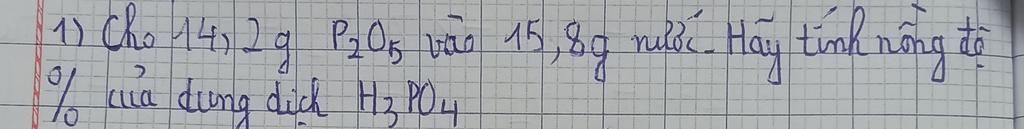 1) Cho 14,2g P₂O₅ vào 15,8g nước. Hãy tính nồng độ
% của dung dịch H₃PO₄